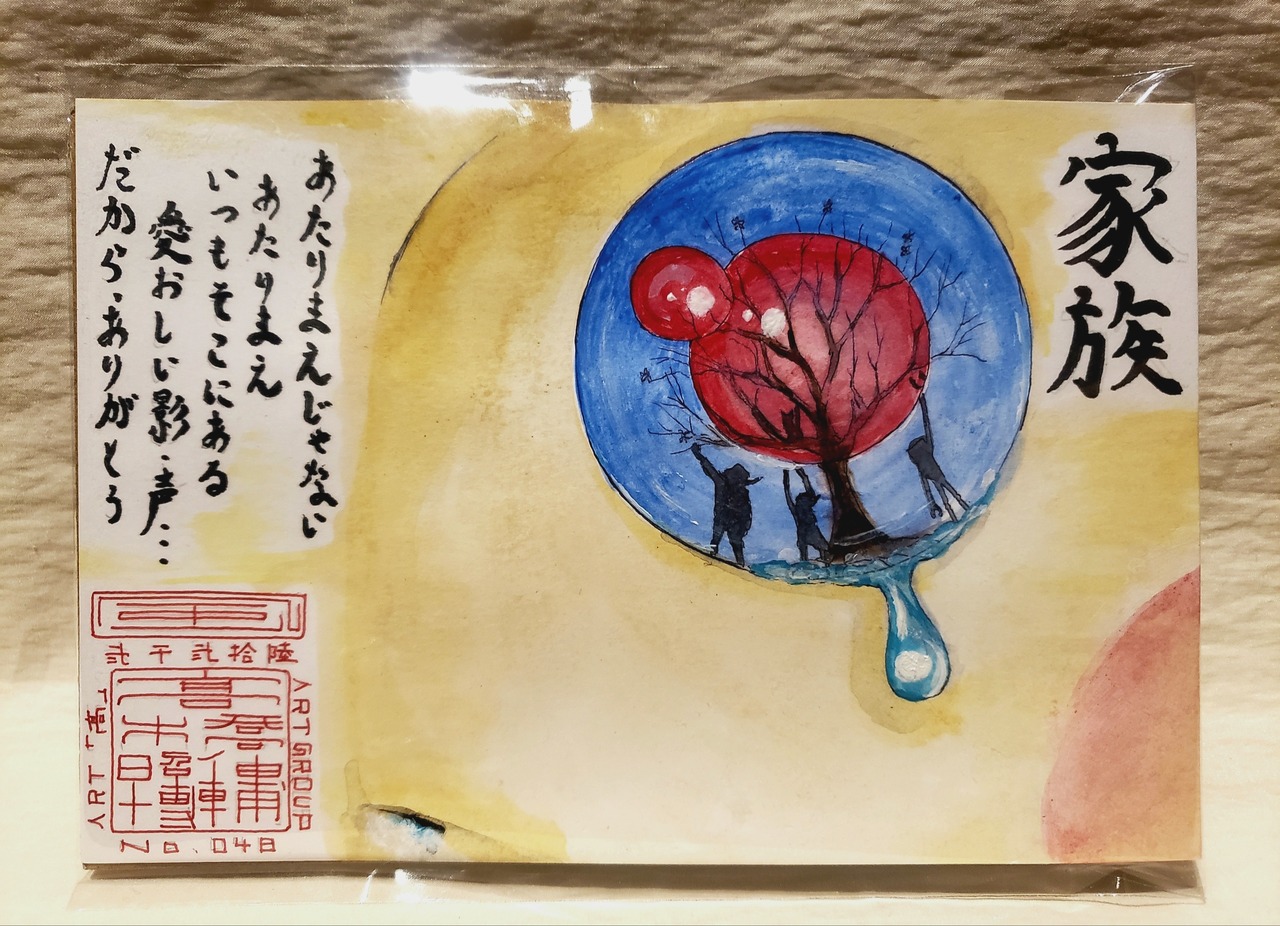 家族
あたりまえじゃない
あたりまえ
いつもそこにある
愛おしい影・声…
だから、ありがとう
弐千弐拾陸
ART GROUP
ART「高」
No.048